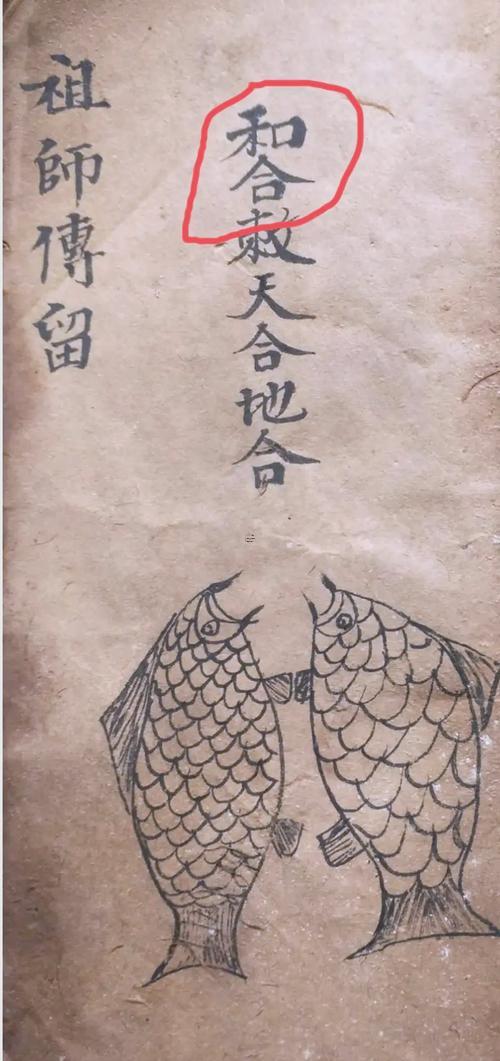 和合敕天合地合
祖師傳留